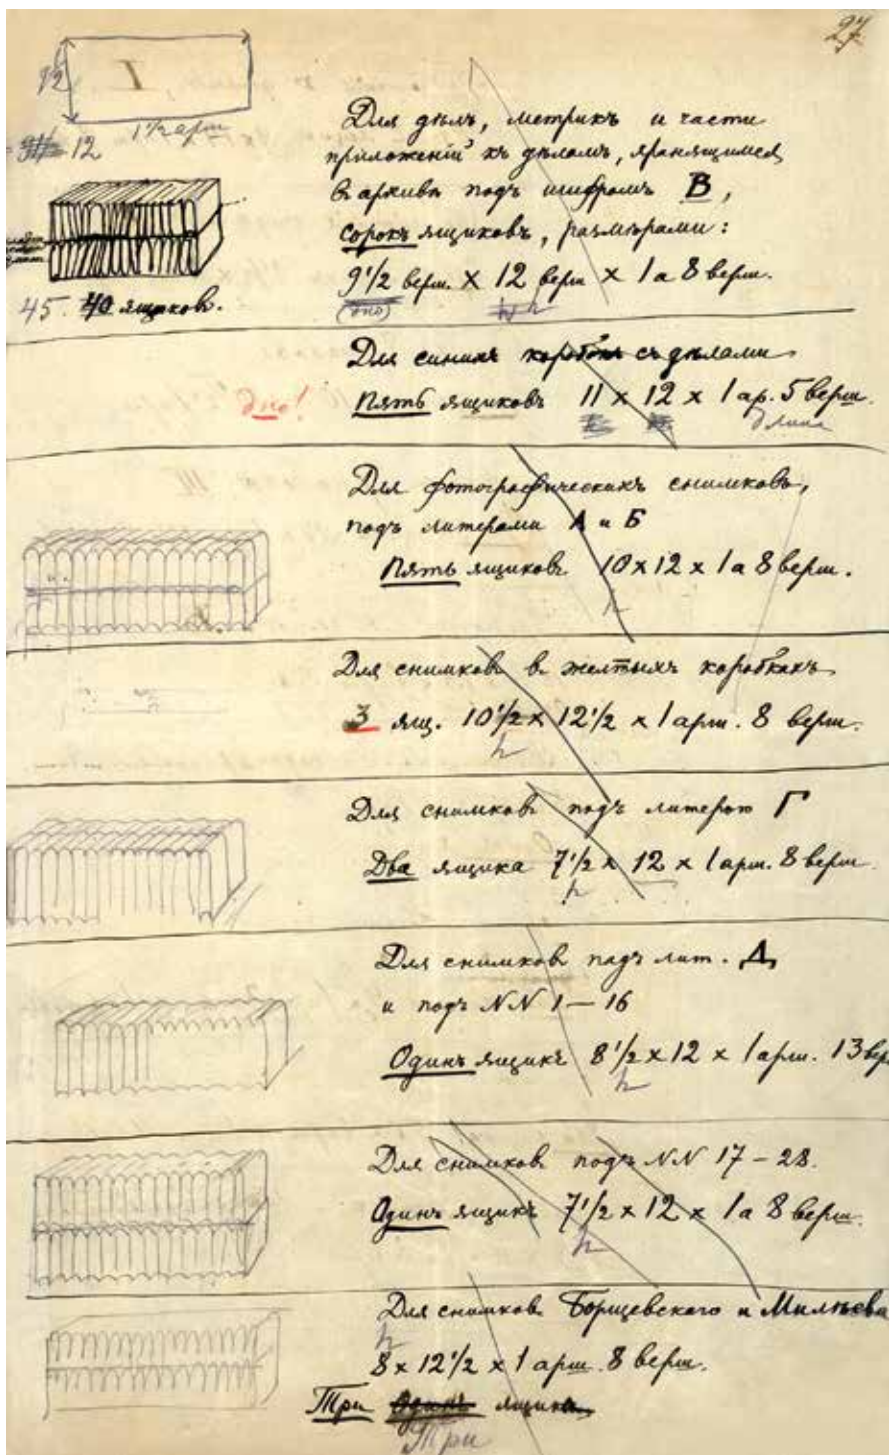 27
12
I
1½ арш
12
Для дѣлъ, метрикъ и части
приложенiй къ дѣламъ, хранящимся
въ архивѣ подъ шифромъ В,
сорокъ ящиковъ, размѣрами:
9½ верш. × 12 верш × 1 а 8 верш.
(дно) h
45. 40 ящиков.
Для синихъ коробокъ съ дѣлами
дно! Пять ящиковъ 11 × 12 × 1 ар. 5 верш.
длина
Для фотографическихъ снимковъ,
подъ литерами А и Б
Пять ящиковъ 10 × 12 × 1 а 8 верш.
h
Для снимковъ въ желтыхъ коробкахъ
3 ящ. 10½ × 12½ × 1 арш. 8 верш.
h
Для снимковъ подъ литерою Г
Два ящика 7½ × 12 × 1 арш. 8 верш.
h
Для снимковъ подъ лит. Д
и подъ NN 1 — 16
Одинъ ящикъ 8½ × 12 × 1 арш. 13 вер
h
Для снимковъ подъ NN 17 – 28.
Одинъ ящикъ 7½ × 12 × 1 а 8 верш.
h
Для снимковъ Борщевского и Милѣева
h
8 × 12½ × 1 арш. 8 верш.
Три Одинъ ящика
Три